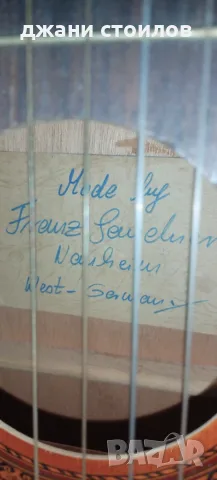 джани стоилов
Made by
Franz
Nauheim
West-Germany
BAZAR